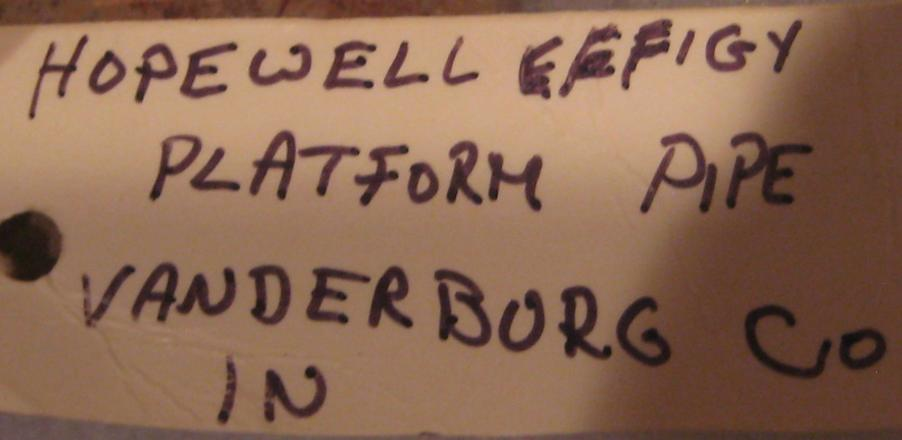 HOPEWELL EFFIGY
PLATFORM PIPE
VANDERBURG CO
IN